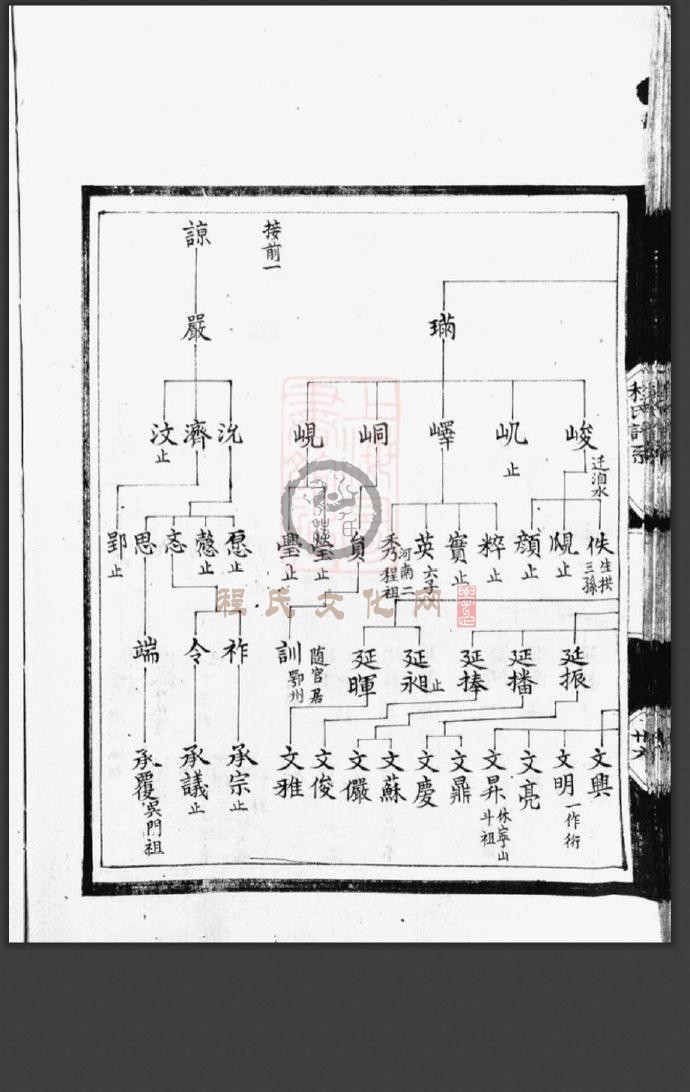 程氏譜系
廿六
接前一
璊
諒
嚴
峻 迁洎水
屼 止
嶧
峒
峴
沇
濟
汶 止
佚 生拱三孫
止
顔 止
粹 止
實 止
英 六子
秀 河南二程祖
負
瑩 止
璺 止
愿 止
愸 止
忞
思
郢 止
延振
延播
延捧
延昶 止
延暉
訓 随官居鄂州
祚
令
端
文興
文明 一作術
文亮
文昇 休寧山斗祖
文鼎
文慶
文蘇
文儼
文俊
文雅
承宗 止
承議 止
承覆 吳門祖
程氏文化网